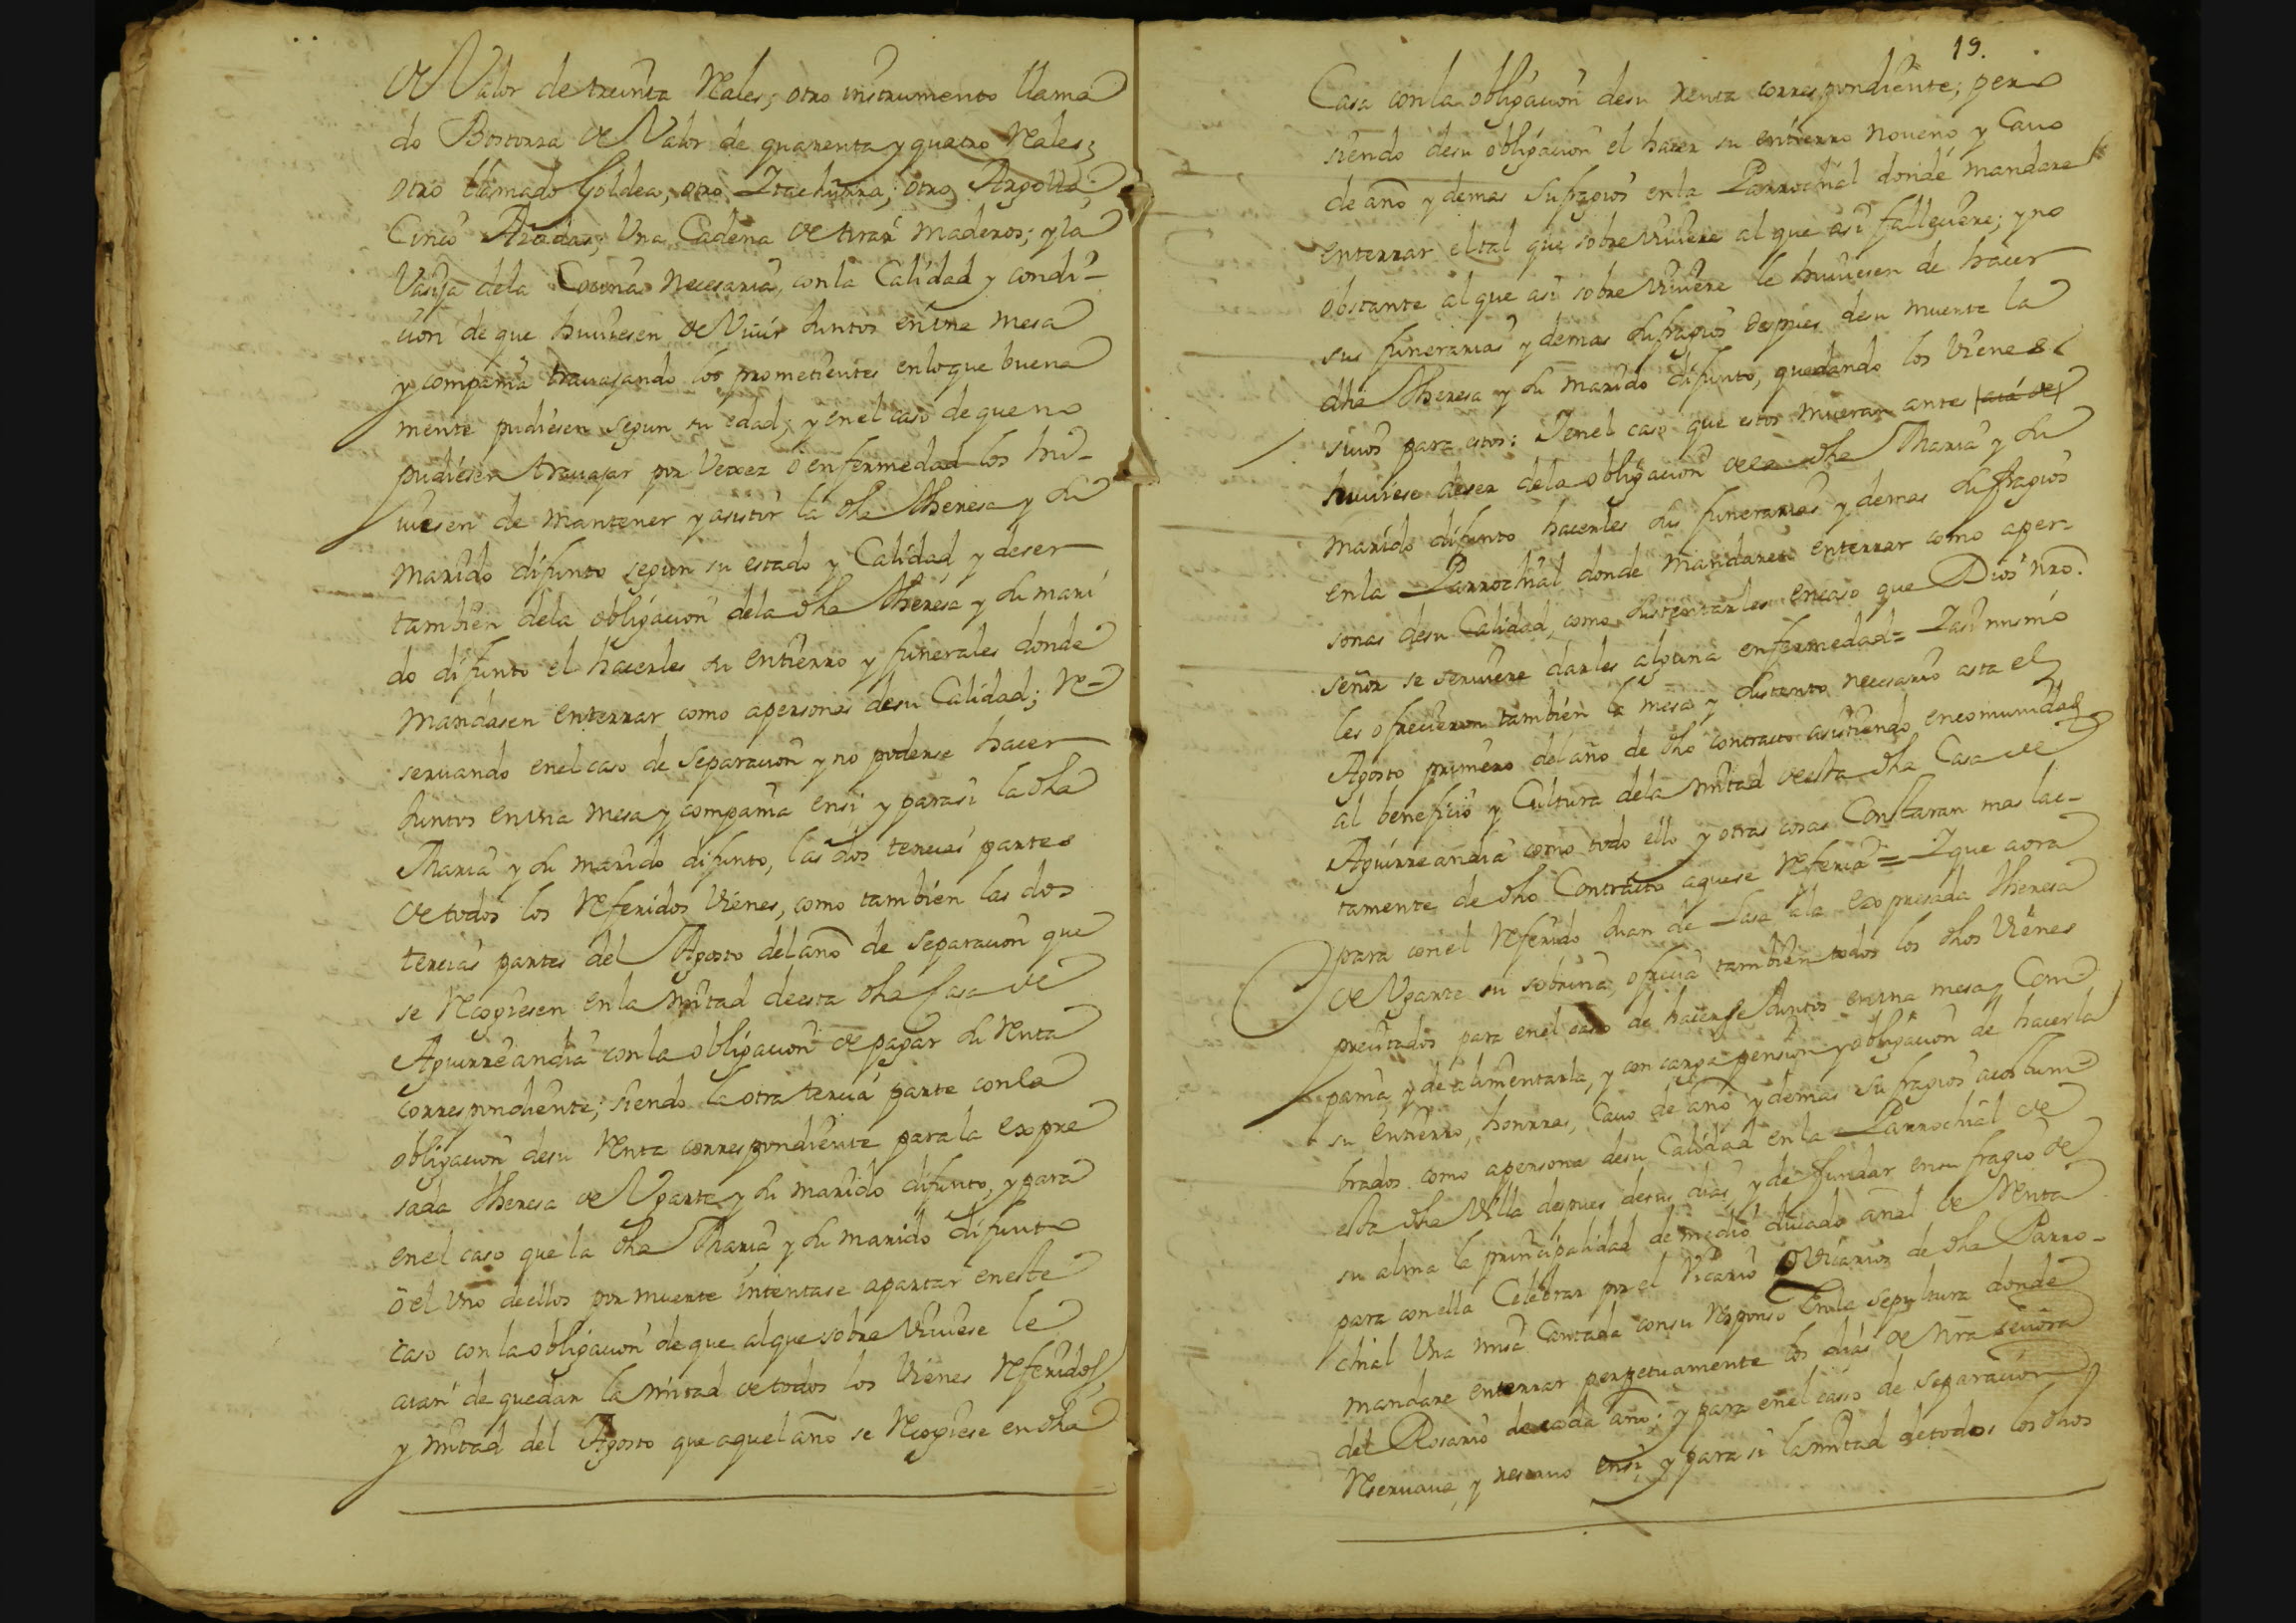 de Valor de treinta Reales; otro instrumento llama
do Bostorza de Valor de quarenta y quatro Reales;
otro llamado Goldea; otro Itachurra; otro Argolla;
Cinco Azadas; Una Cadena de tirar maderos; y la
Vasija dela Cocina necesaria, con la Calidad y condi-
cion de que huuiesen de Viuir Juntos en una mesa
y compañia trauajando los prometientes enloque buena
mente pudiesen segun su edad; y enel caso de que no
pudiesen trauajar por Vexez ò enfermedad los hu-
uiesen de mantener y asistir la dha Theresa y su
marido difunto segun su estado y Calidad y deser
tambien dela obligacion dela dha Theresa y su mari
do difunto el hacerles su entierro y funerales donde
mandasen enterrar como apersonas desu Calidad; Re-
seruando enel caso de Separacion y no poderse hacer
Juntos en una mesa y compañia ensi y parasi la dha
Maria y su marido difunto, las dos tercias partes
de todos los Referidos Vienes, como tambien las dos
tercias partes del Agosto del año de separacion que
se Recogiesen en la mitad deesta dha Casa de
Aguirreandia con la obligacion de pagar su Renta
correspondiente; siendo la otra tercia parte con la
obligacion desu Renta correspondiente para la expre
sada Theresa de Ugarte y su marido difunto, y para
en el caso que la dha Maria y su marido difunto
ò el uno deellos por muerte intentase apartar en este
caso con la obligacion de que alque sobre Viuiese le
aian de quedar la mitad de todos los Vienes Referidos,
y mitad del Agosto que aquel año se Recogiese en dha
19.
Casa con la obligacion desu renta correspondiente; pero
siendo desu obligacion el hacer su entierro noueno y Cauo
de año y demas Sufragios en la Parrochial donde mandare
enterrar el tal que sobreViuiere al que asi fallesciere; y no
obstante al que asi sobreViuiere le huuiesen de hacer
sus funerarias y demas Sufragios despues desu muerte la
dha Theresa y su marido difunto, quedando los Vienes
siuos para estos: Y enel caso que estos mueran ante
huuiese deser dela obligacion dela dha Maria y su
marido difunto hacerles sus funerarias y demas Sufragios
en la Parrochial donde mandaren enterrar como aper-
sonas desu Calidad, como sustentarles encaso que Dios nro.
señor se seruiere darles alguna enfermedad= Y asi mismo
les ofrecieron tambien la mesa y sustento necesario asta el
Agosto primero del año de dho contracto asistiendo encomunidad
al beneficio y Cultura dela mitad deesta dha Casa de
Aguirreandia como todo ello y otras cosas Constaran mas lac-
tamente de dho Contracto aquese Referia= Y que aora
para con el Referido Juan de Lasa ala expresada Theresa
de Ugarte su sobrina, ofrecia tambien todos los dhos Vienes
precitados para enel caso de hacerse Juntos en una mesa y Com
pañia y de alimentarla, y con carga pension y obligacion de hacerla
su Entierro, honrras, Cauo de año y demas Sufragios acostum
brados como apersona desu Calidad en la Parrochial de
esta dha Villa despues desus dias y de fundar ensufragio de
su alma la principalidad de medio ducado anal de Renta
para con ella Celebrar por el Vicario o Vicarios de dha Parro-
chial Una misa Cantada consu Responso En la sepultura donde
mandare enterrar perpetuamente los dias de nra señora
del Rosario de cada año; y para en el casso de separacion
Reseruaua, y reseruo ensi, y para si la mitad de todos los dhos